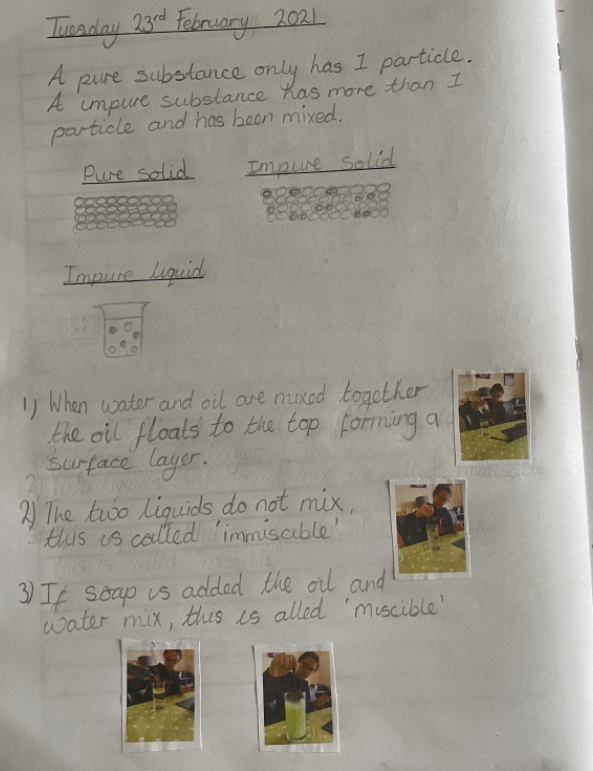 Tuesday 23rd February 2021
A pure substance only has 1 particle.
A impure substance has more than 1
particle and has been mixed.
Pure solid
Impure solid
Impure liquid
1) When water and oil are mixed together
the oil floats to the top forming a
surface layer.
2) The two liquids do not mix,
this is called 'immiscible'
3) If soap is added the oil and
water mix, this is alled 'miscible'